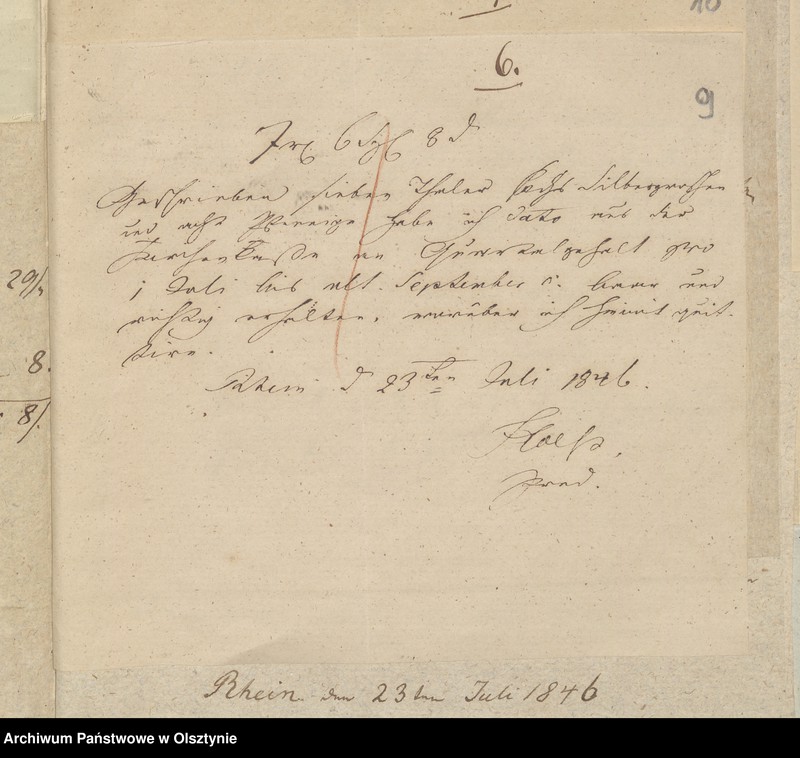 10
6.
9
7 rℓ 6 Sgℓ 8 d
Geschrieben sieben Thaler sechs Silbergroschen
und acht Pfennige habe ich dato aus der
an Quartalgehalt pro
1 Juli bis ult. September c. baar und
richtig erhalten, worüber ich hiermit quit-
tire.
Rhein d 23ten Juli 1846.
Pred.
29/
8.
8/.
Rhein den 23ten Juli 1846
Archiwum Państwowe w Olsztynie